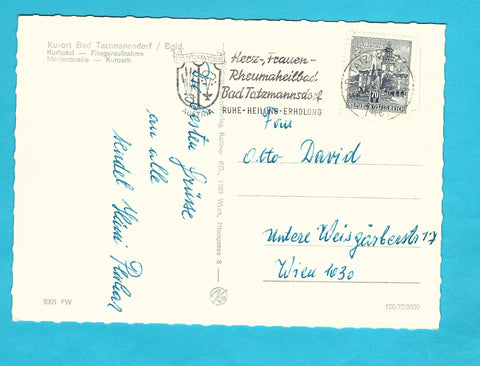 Kurort Bad Tatzmannsdorf / Bgld.
Kurhotel — Fliegeraufnahme
Marienquelle — Kurpark
Herz-, Frauen-
Rheumaheilbad
Bad Tatzmannsdorf
RUHE-HEILUNG-ERHOLUNG
70
REPUBLIK ÖSTERREICH
Die besten Grüsse
an alle
sendet
Fam
Otto David
Untere Weisgärberstr 17
Wien 1030
Verlag Kellner KG., 1150 Wien,
9005 FW
120/72/9030